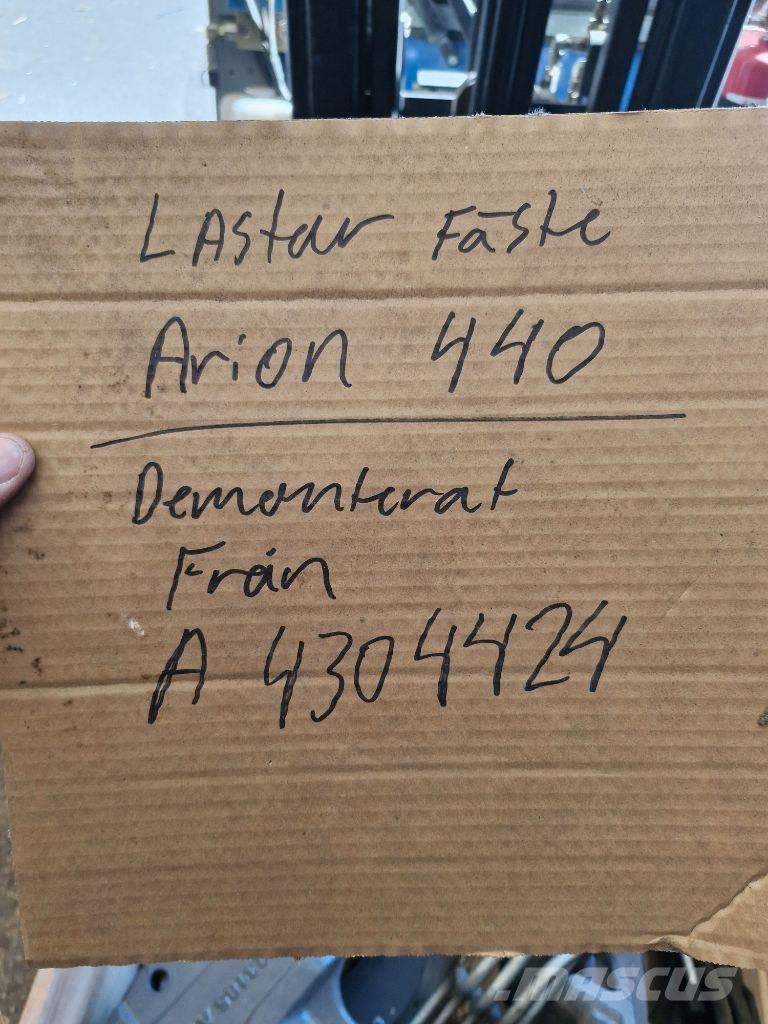 LAstar Fäste
Arion 440
Demonterat
Från
A 4304424
MASCUS